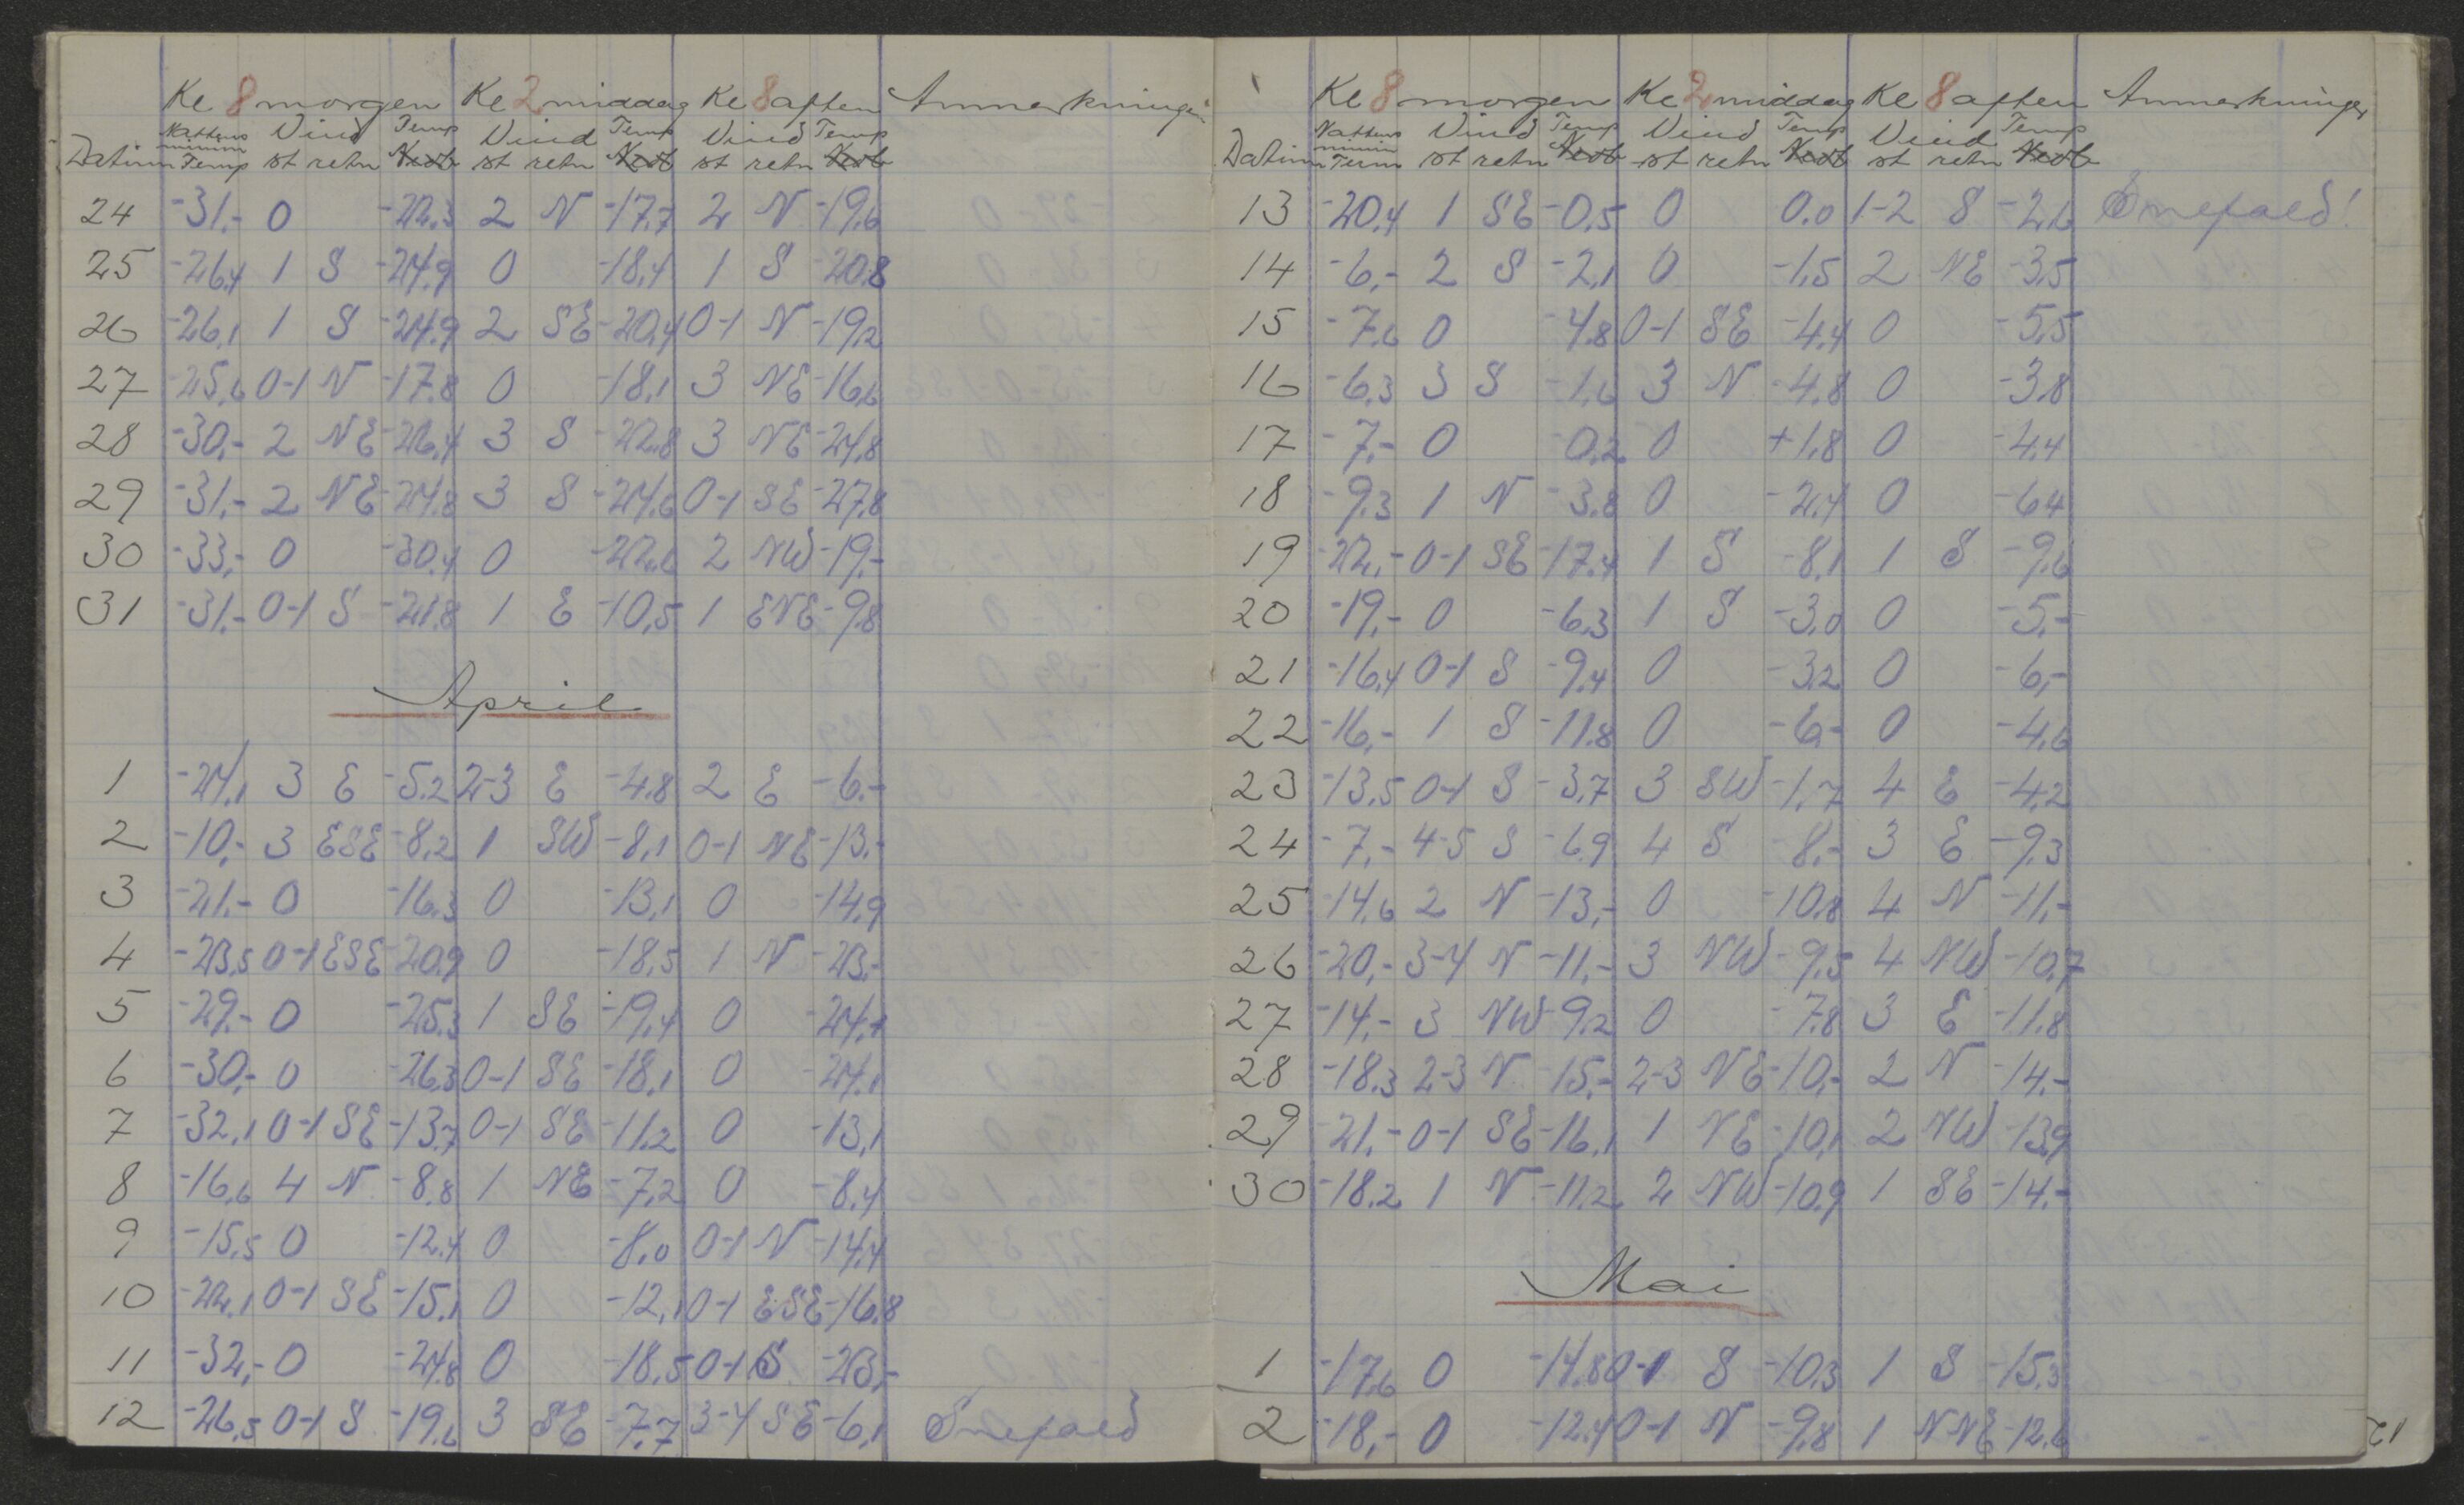 Kl 8 morgen Kl 2 middag Kl 8 aften Anmerkninger
Nattens Vind Temp Vind Temp Vind Temp
Datum minim Temp st retn Nedb st retn Nedb st retn Nedb
24 -31,- 0 -22.3 2 N -17,7 2 N -19,6
25 -26,4 1 S -24,9 0 -18,4 1 S -20.8
26 -26,1 1 S -24.9 2 SE -20,4 0-1 N -19,2
27 -25,6 0-1 N -17.8 0 -18,1 3 NE -16,6
28 -30,- 2 NE -26,4 3 S -22,8 3 NE -24,8
29 -31,- 2 NE -24.8 3 S -24,6 0-1 SE -27,8
30 -33,- 0 -30,4 0 -22,6 2 NW -19,-
31 -31,- 0-1 S -21.8 1 E -10,5 1 ENE -9,8
April
1 -24,1 3 E -5.2 2-3 E -4,8 2 E -6,-
2 -10,- 3 ESE -8,2 1 SW -8,1 0-1 NE -13,-
3 -21,- 0 -16,3 0 -13,1 0 -14,9
4 -23,5 0-1 ESE -20,9 0 -18,5 1 N -23,-
5 -29,- 0 -25,3 1 SE -19,4 0 -24,1
6 -30,- 0 -26,3 0-1 SE -18,1 0 -24,1
7 -32,1 0-1 SE -13,7 0-1 SE -11,2 0 -13,1
8 -16,6 4 N -8,8 1 NE -7,2 0 -8,4
9 -15,5 0 -12,4 0 -8,0 0-1 N -14,4
10 -22,1 0-1 SE -15,1 0 -12,1 0-1 ESE -16,8
11 -32,- 0 -24,8 0 -18,5 0-1 S -23,-
12 -26,5 0-1 S -19,6 3 SE -7,7 3-4 SE -6,1 Snefald
Kl 8 morgen Kl 2 middag Kl 8 aften Anmerkninger
Nattens Vind Temp Vind Temp Vind Temp
Datum minim Term st retn Nedb st retn Nedb st retn Nedb
13 -20,4 1 SE -0,5 0 0.0 1-2 S -2,6 Snefald!
14 -6,- 2 S -2,1 0 -1,5 2 NE -3,5
15 -7,6 0 -4,8 0-1 SE -4,4 0 -5,5
16 -6,3 3 S -1,6 3 N -4,8 0 -3,8
17 -7,- 0 -0,2 0 +1,8 0 -4,4
18 -9,3 1 N -3,8 0 -2,4 0 -6,4
19 -22,- 0-1 SE -17,4 1 S -8,1 1 S -9,6
20 -19,- 0 -6,3 1 S -3,0 0 -5,-
21 -16,4 0-1 S -9,4 0 -3,2 0 -6,-
22 -16,- 1 S -11.8 0 -6,- 0 -4,6
23 -13,5 0-1 S -3,7 3 SW -1,7 4 E -4,2
24 -7,- 4-5 S -6,9 4 S -8,- 3 E -9,3
25 -14,6 2 N -13,- 0 -10,8 4 N -11,-
26 -20,- 3-4 N -11,- 3 NW -9,5 4 NW -10,7
27 -14,- 3 NW -9,2 0 -7,8 3 E -11,8
28 -18,3 2-3 N -15,- 2-3 NE -10,- 2 N -14,-
29 -21,- 0-1 SE -16,1 1 NE -10,1 2 NW -13,9
30 -18,2 1 N -11,2 2 NW -10,9 1 SE -14,-
Mai
1 -17,6 0 -14,8 0-1 S -10,3 1 S -15,3
2 -18,- 0 -12,4 0-1 N -9,8 1 NNE -12,6